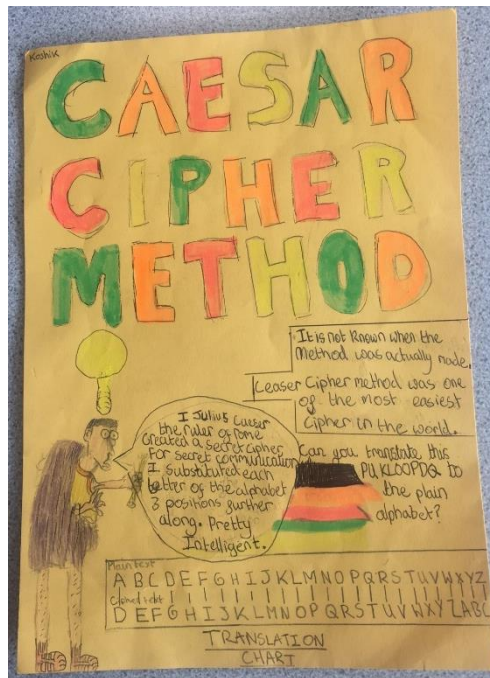 Koshik
CAESAR
CIPHER
METHOD
It is not known when the
Method was actually made.
Ceaser Cipher method was one
of the most easiest
Cipher in the world.
I Julius Caeser
the ruler of rome
Created a secret cipher
For secret communication
I substituted each
letter of the alphabet
3 positions further
along. Pretty
Intelligent.
Can you translate this
to
the plain
alphabet?
Plain text
A B C D E F G H I J K L M N O P Q R S T U V W X Y Z
D E F G H I J K L M N O P Q R S T U V W X Y Z A B C
TRANSLATION
CHART